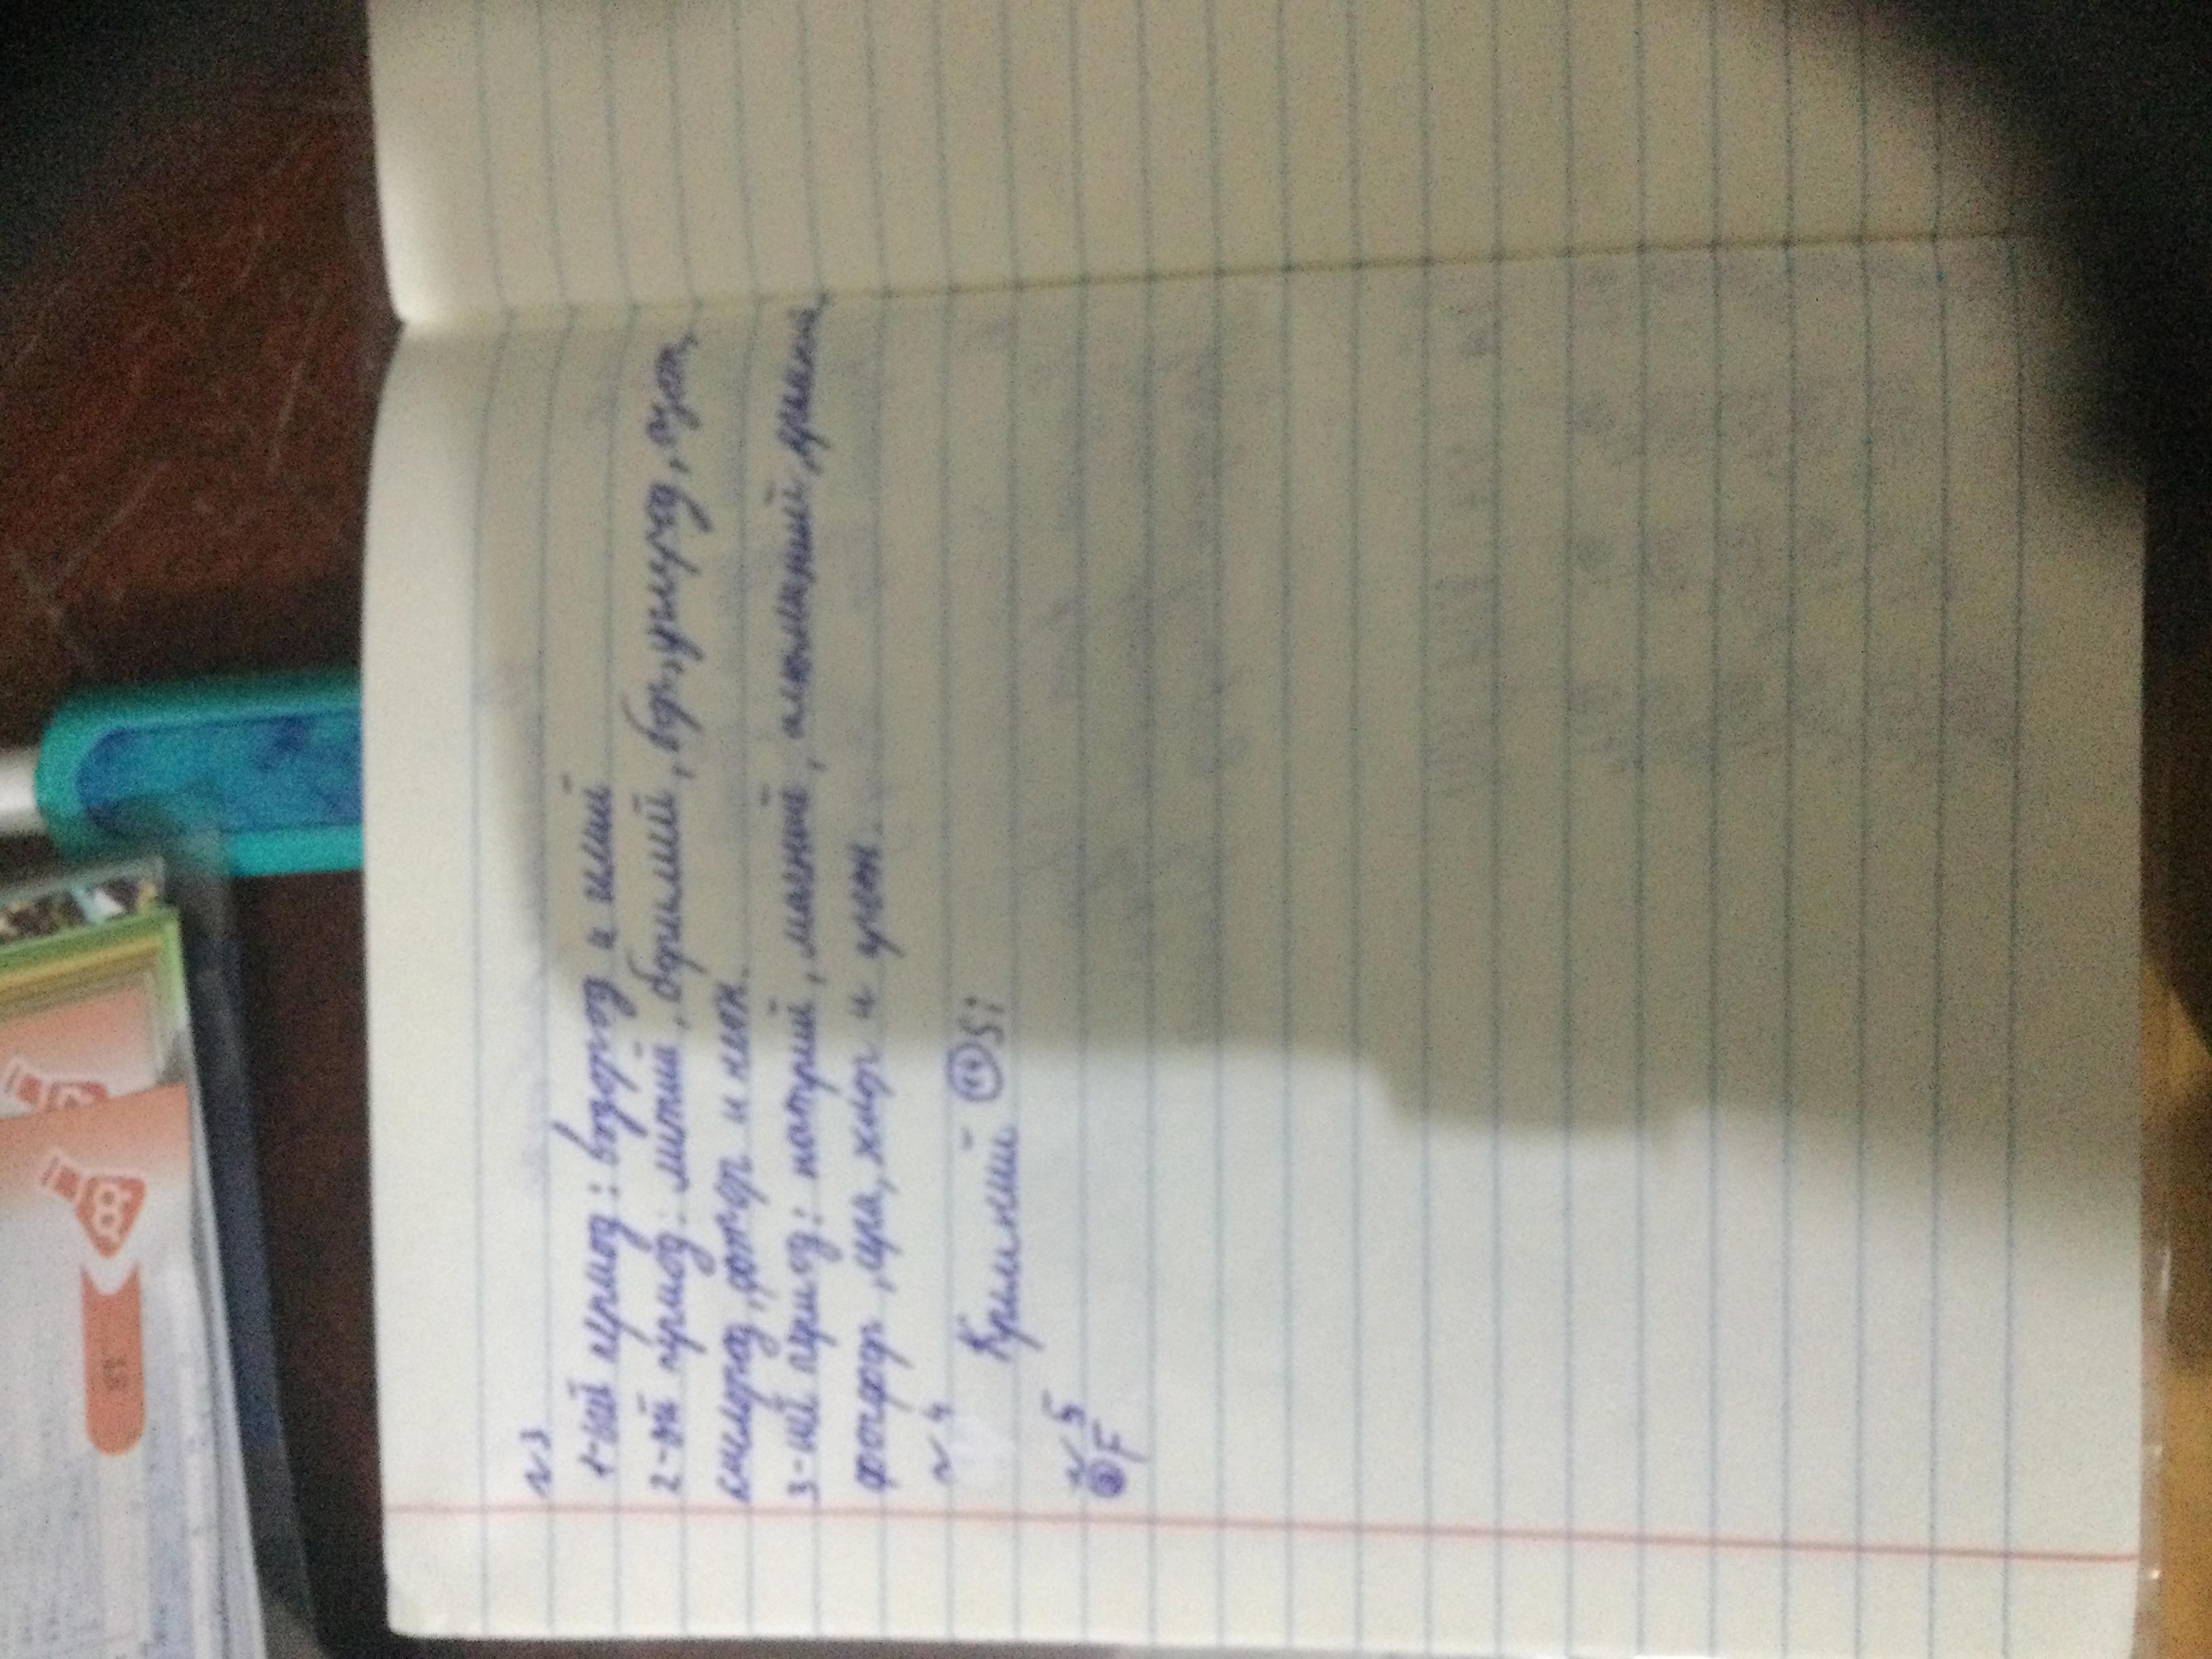 №3
1-ый период: водород и гелий
2-ой период: литий, бериллий, бор, углерод, азот,
кислород, фтор и неон.
3-ий период: натрий, магний, алюминий, кремний,
фосфор, сера, хлор и аргон.
№4
Кремний 14 Si
№5
9 F
8